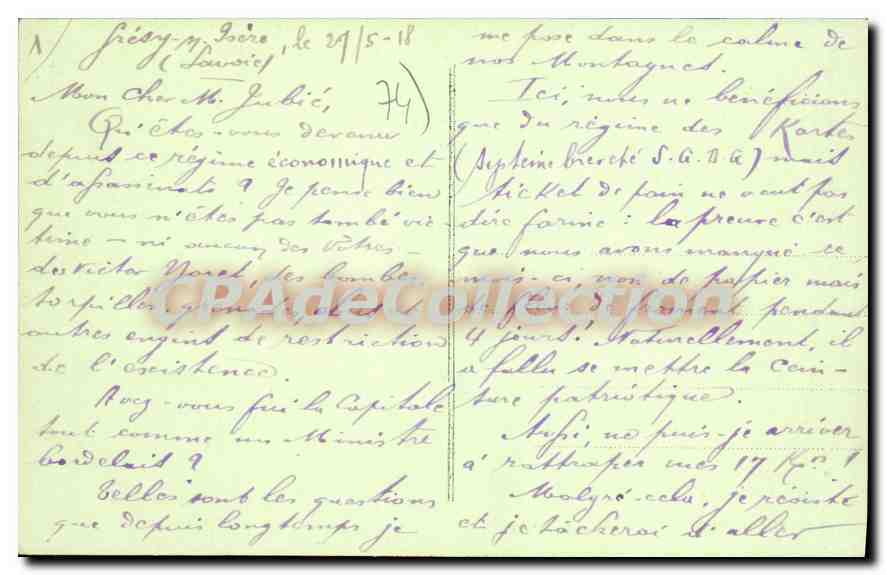 1/ Grésy-s-Isère, le 29/5-18
(Savoie)
Mon cher M. Jubié, 74)
Qu'êtes-vous devenu
depuis ce régime économique et
d'assassinats ? Je pense bien
que vous n'êtes pas tombé vic-
time - ni aucun des Vôtres -
des Victor Noret, des bombes
torpilles,
autres engins de restriction
de l'existence.
Avez-vous fui la Capitale
tout comme un Ministre
bordelais ?
Telles sont les questions
que depuis longtemps je
me pose dans le calme de
nos Montagnes.
Ici, nous ne bénéficions
que du régime des Kartes
(système breveté S.G.D.G) mais
ticket de pain ne veut pas
dire farine : la preuve c'est
que nous avons manqué ce
mois-ci, non de papier mais
de froment pendant
4 jours ! Naturellement, il
a fallu se mettre la cein-
ture patriotique.
Aussi, ne puis-je arriver
à rattraper mes 17 Kgs !
Malgré-cela, je résiste
et je tâcherai d'aller
CPAdeCollection.com